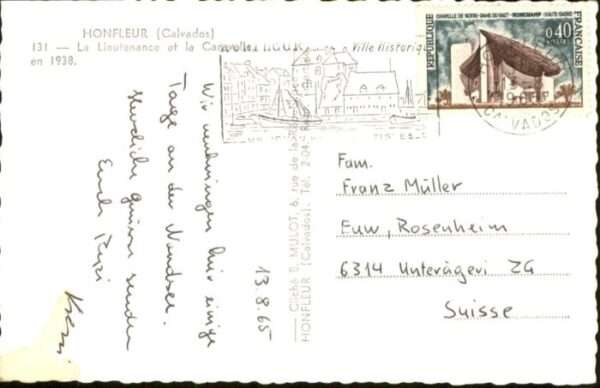 HONFLEUR (Calvados)
131 — La Lieutenance et la Capvelle
en 1938.
Ville Historique
CHAPELLE DE NOTRE-DAME DU HAUT - RONCHAMP - HAUTE-SAONE
REPUBLIQUE
FRANÇAISE
0,40
CALVADOS
Cliché S. MULOT, 6, rue de la
HONFLEUR (Calvados). Tél. 2.04
13.8.65
Wir verbringen hier einige
Tage an der Nordsee.
Herzliche Grüsse senden
Euch
Fam.
Franz Müller
Euw, Rosenheim
6314 Unterägeri ZG
Suisse